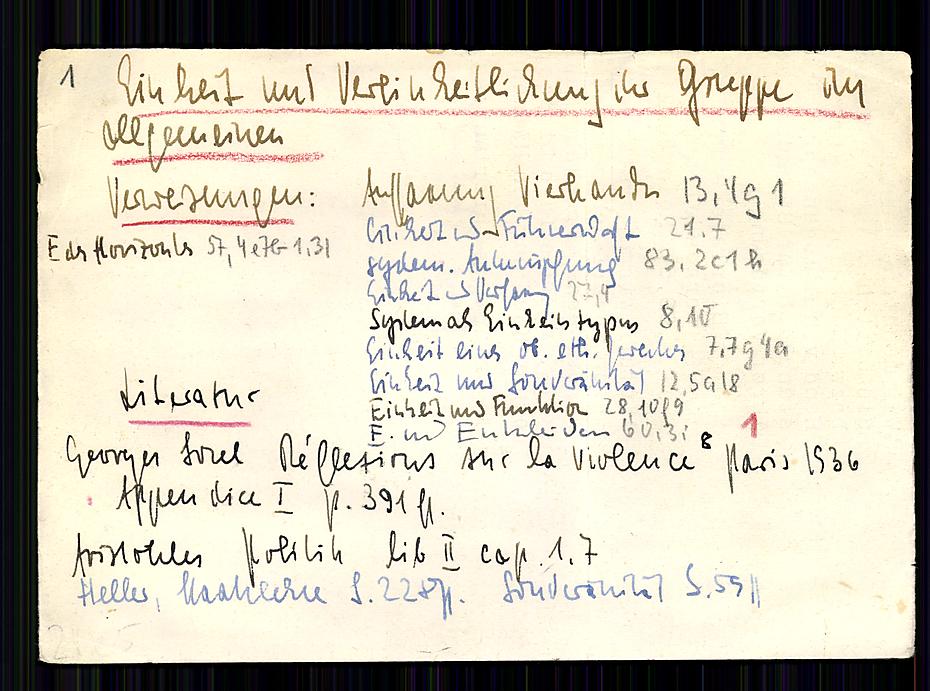 1 Einheit und Vereinheitlichung der Gruppe im
allgemeinen
Verweisungen: Auffassung Vierkandts 13,4g1
Einheit u Führerschaft 21.7
E des Horizonts 57,4e7b-1.31
system. Anknüpfung 83.2c1h
Einheit u Verfassung 27,4
System als Einheitstypus 8,1
Einheit eines ob. eth. Zweckes 7,7g4a
Einheit und Souveränität 12,5a18
Literatur
Einheit und Funktion 28,10f9
E. und Entscheiden 60.3i
1
Georges Sorel Réflexions sur la Violence 8 Paris 1936
Appendice I p. 391ff.
Aristoteles Politik lib II cap. 1.7
Heller, Staatslehre S. 228ff. Souveränität S. 59ff